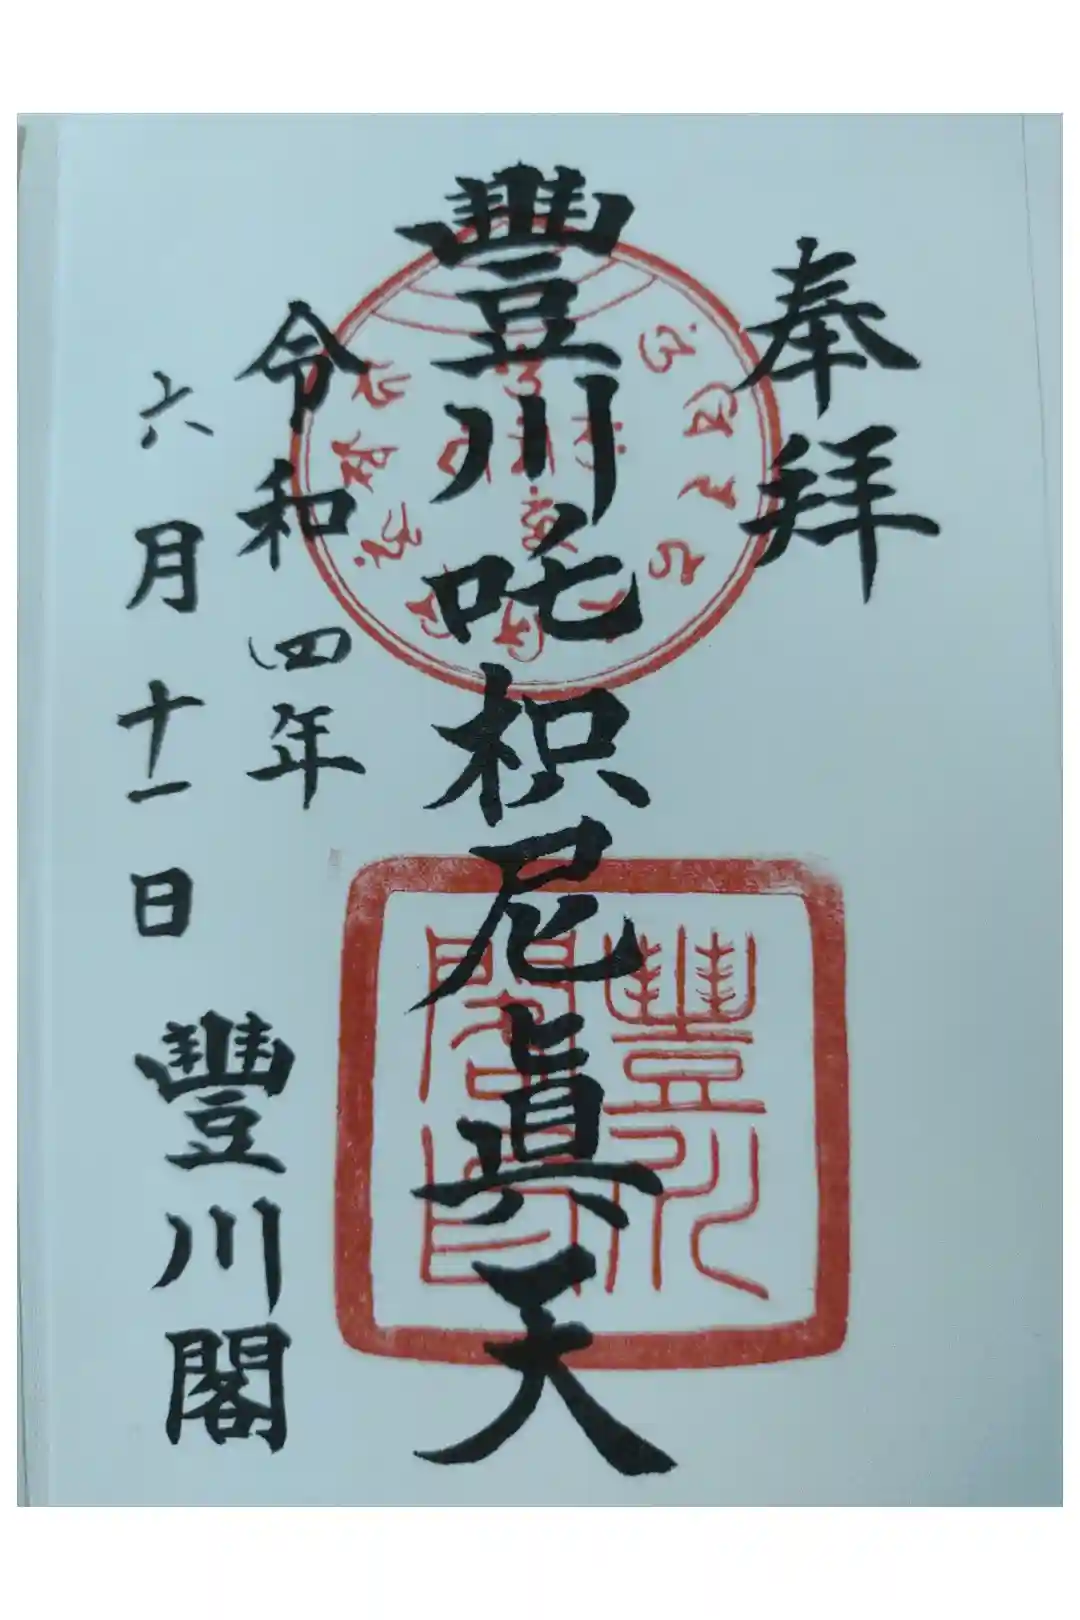 奉拝
豐川吒枳尼眞天
令和四年
六月十一日
豐川閣
豐川閣印